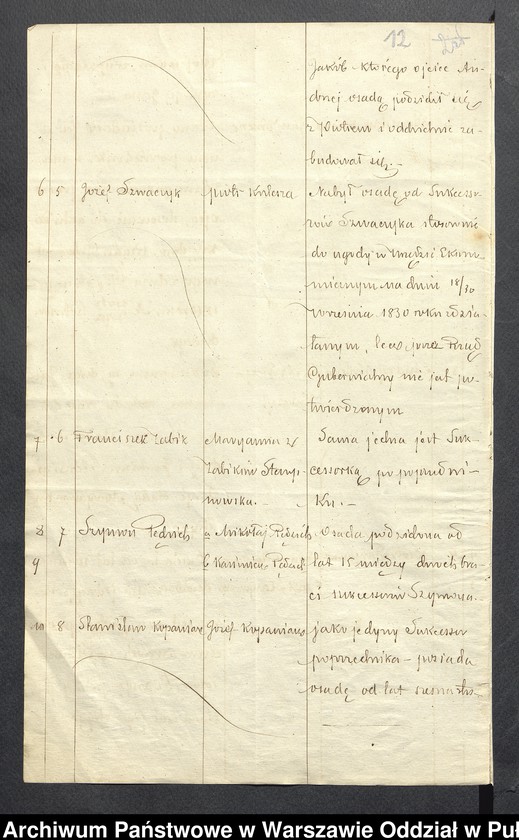 12
Jakób którego ojciec An-
drzej osadę podzielił się
z Piotrem i oddzielnie za-
budował się.-
6 5 Józef Szwaczyk Piotr Kulesza Nabył osadę od Sukcesso-
rów Szwaczyka stosownie
do ugody w Urzędzie Ekono-
micznym na dniu 18/30
Września 1830 roku zdzia-
łanym, lecz przez Rząd
Gubernialny nie jest po-
twierdzonym
7 6 Franciszek Żabik Maryanna z Sama jedna jest Suk-
Żabików cessorką po poprzedni-
nowska.- ku.-
8 7 Szymon a Mikołaj Osada podzielona od
9 b Kazimierz lat 15 między dwóch bra-
ci sukcessorów Szymona.
10 8 Stanisław Kopaniarz Józef Kopaniarz jako jedyny Sukcessor
poprzednika - posiada
osadę od lat
Archiwum Państwowe w Warszawie Oddział w Pu